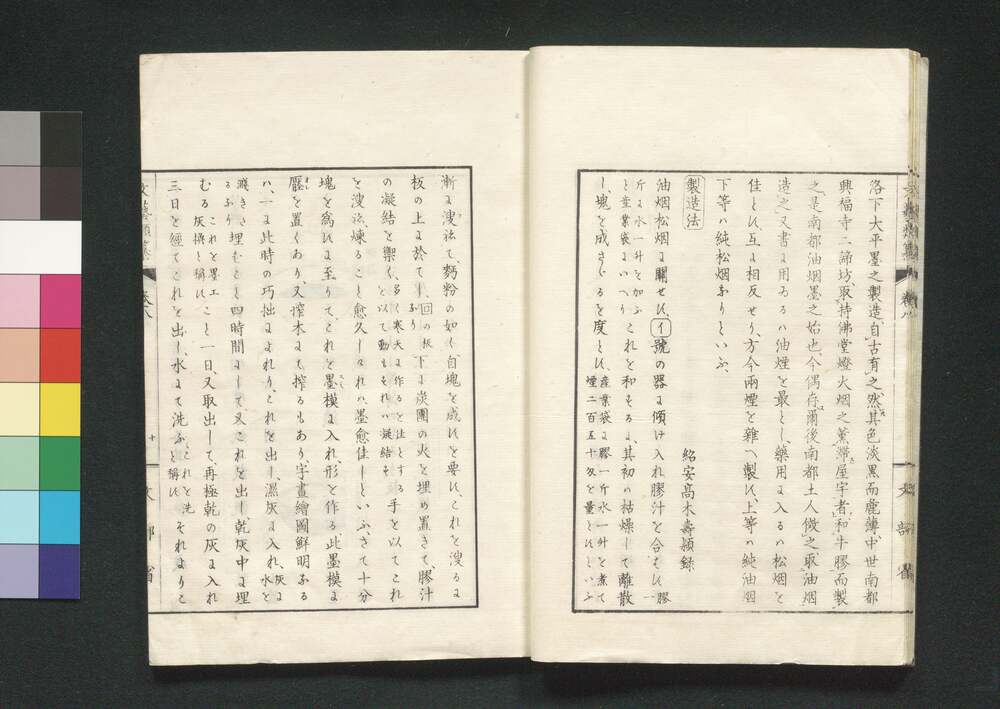 洛下大平墨之製造、自古有之、然其色淡黒而麁薄、中世南都
興福寺二諦坊、取持佛堂燈火烟之薰滞屋宇者、和牛膠而製
之、是南都油烟墨之始也、今偶存爾後南都土人倣之、取油烟
造之、又書ニ用ゐるハ油煙を最とし、藥用ニ入るハ松烟を
佳とし、互ニ相反せり、方今兩煙を雜へ製し、上等ハ純油烟
下等ハ純松烟なりといふ、
紹安高木壽頴録
製造法
油烟松烟ニ關せす、イ號の器ニ傾け入れ膠汁を合はす、膠一
斤ニ水一升を加ふ
これを和するニ、其初ハ枯燥して離散
し、塊を成さゞるを度とす、
産業袋ニ膠一斤水一升を煮て
煙二百五十匁を量とすといふ
漸ニ溲れて、麪粉の如く自塊を成すを要す、これを溲るニ
板の上ニ於てし、
下ニ炭團の火を埋め置きて、膠汁
の凝結を禦く、
手を以てこれ
を溲ね、煉ること愈久しけれハ、墨愈佳しといふ、さて十分
塊を爲すニ至りて、これを墨模ニ入れ形を作る此墨模ニ
壓を置くあり、又搾木ニて搾るもあり字畫繪圖鮮明なる
ハ、一ニ此時の巧拙ニよれり、これを出し、濕灰ニ入れ、
埋むこと四時間ニして、又これを出し乾灰中ニ埋
むる
これを墨工
灰換と稱す、
こと一日、又取出して、再極乾の灰ニ入れ
三日を經てこれを出し、水ニて洗ふ、
これを洗
と稱す
それよりこ
十
文部省